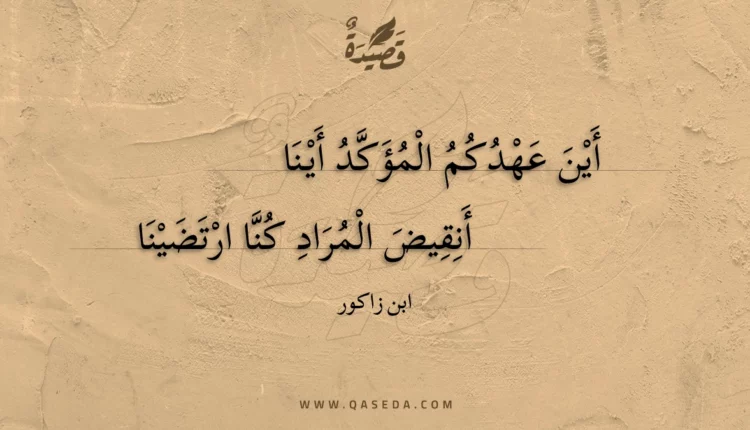 قَصِيدَةٌ
أَيْنَ عَهْدُكُمُ الْمُؤَكَّدُ أَيْنَا
أَنِقِيضَ الْمُرَادِ كُنَّا ارْتَضَيْنَا
ابن زاكور
WWW.QASEDA.COM